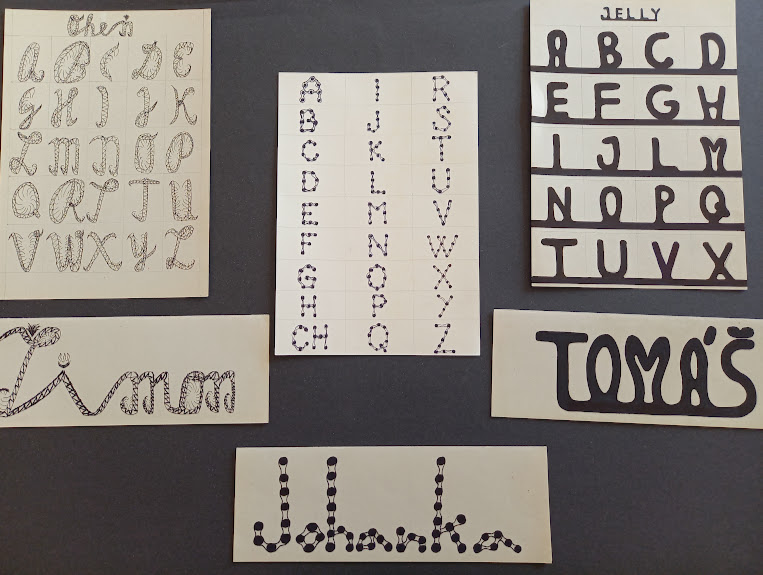 A B C D E
G H I J K
L M N O P
Q R S T U
V W X Y Z
A I R
B J S
C K T
D L U
E M V
F N W
G O X
H P Y
CH Q Z
JELLY
A B C D
E F G H
I J L M
N O P Q
T U V X
Šimon
TOMÁŠ
Johanka